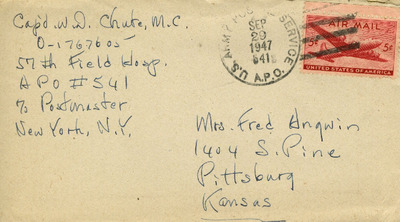 Cap'd W.D. Chute, M.C.
O-1767605
57th Field Hosp.
APO # 541
c/o Postmaster
New York, N.Y.
U.S. ARMY POSTAL SERVICE
SEP
29
1947
541
A.P.O.
AIR MAIL
5¢ 5¢
UNITED STATES OF AMERICA
Mrs. Fred Angwin
1404 S. Pine
Pittsburg
Kansas